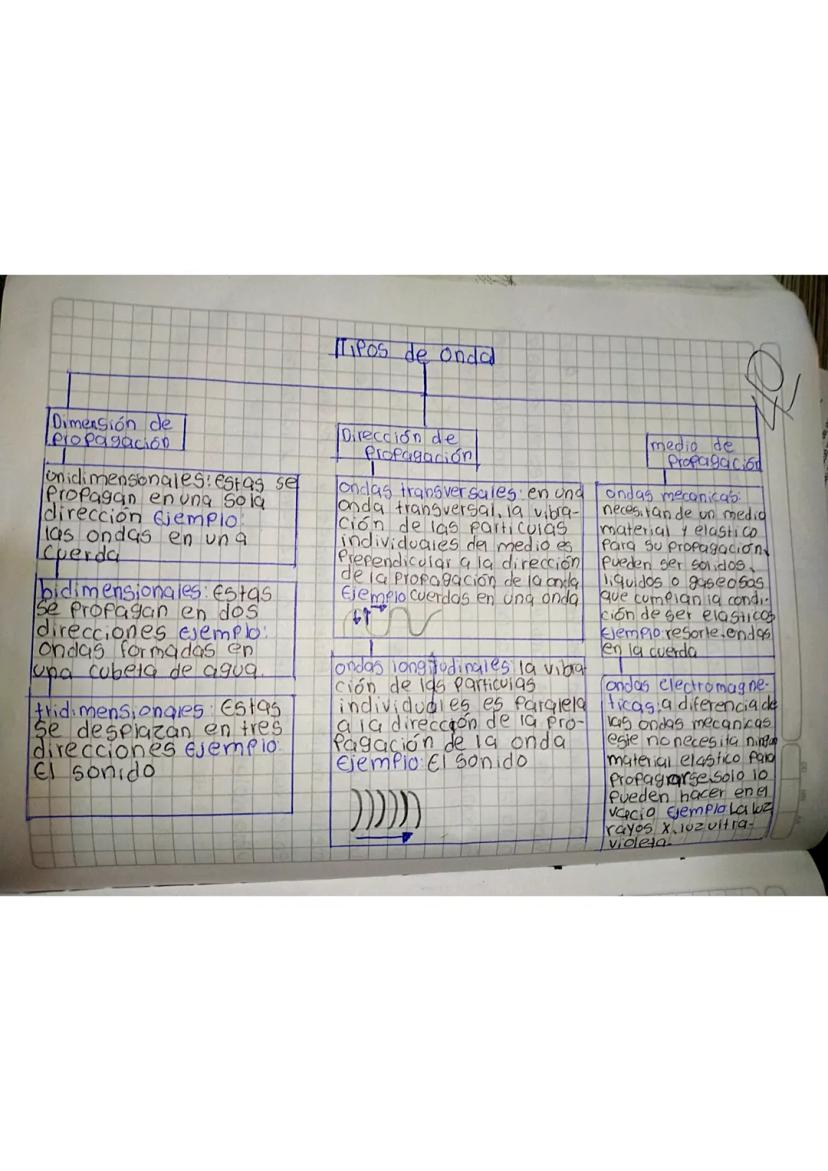 Tipos de onda
Dimensión de
propagación
unidimensonales: estas se
propagan en una sola
dirección ejemplo:
las ondas en una
cuerda
bidimensionales: Estas
se propagan en dos
direcciones ejemplo:
ondas formadas en
una cubeta de agua.
tridimensionales: Estas
se desplazan en tres
direcciones ejemplo:
El sonido
Dirección de
propagación
ondas transversales: en una
onda transversal, la vibra-
ción de las particulas
individuales del medio es
prependicular a la dirección
de la propagación de la onda
Ejemplo cuerdas en una onda
ondas longitudinales: la vibra
ción de las particulas
individuales es paralela
a la dirección de la pro-
pagación de la onda
Ejemplo: El sonido
medio de
propagación
ondas mecanicas:
necesitan de un medio
material y elastico
para su propagación,
pueden ser solidos,
liquidos o gaseosos
que cumplan la condi-
ción de ser elasticos
Ejemplo: resorte, ondas
en la cuerda
ondas electromagne-
ticas: a diferencia de
las ondas mecanicas
este no necesita ningun
material elastico para
propagarse, solo lo
pueden hacer en el
vacio Ejemplo: La luz
rayos x, luz ultra-
violeta.